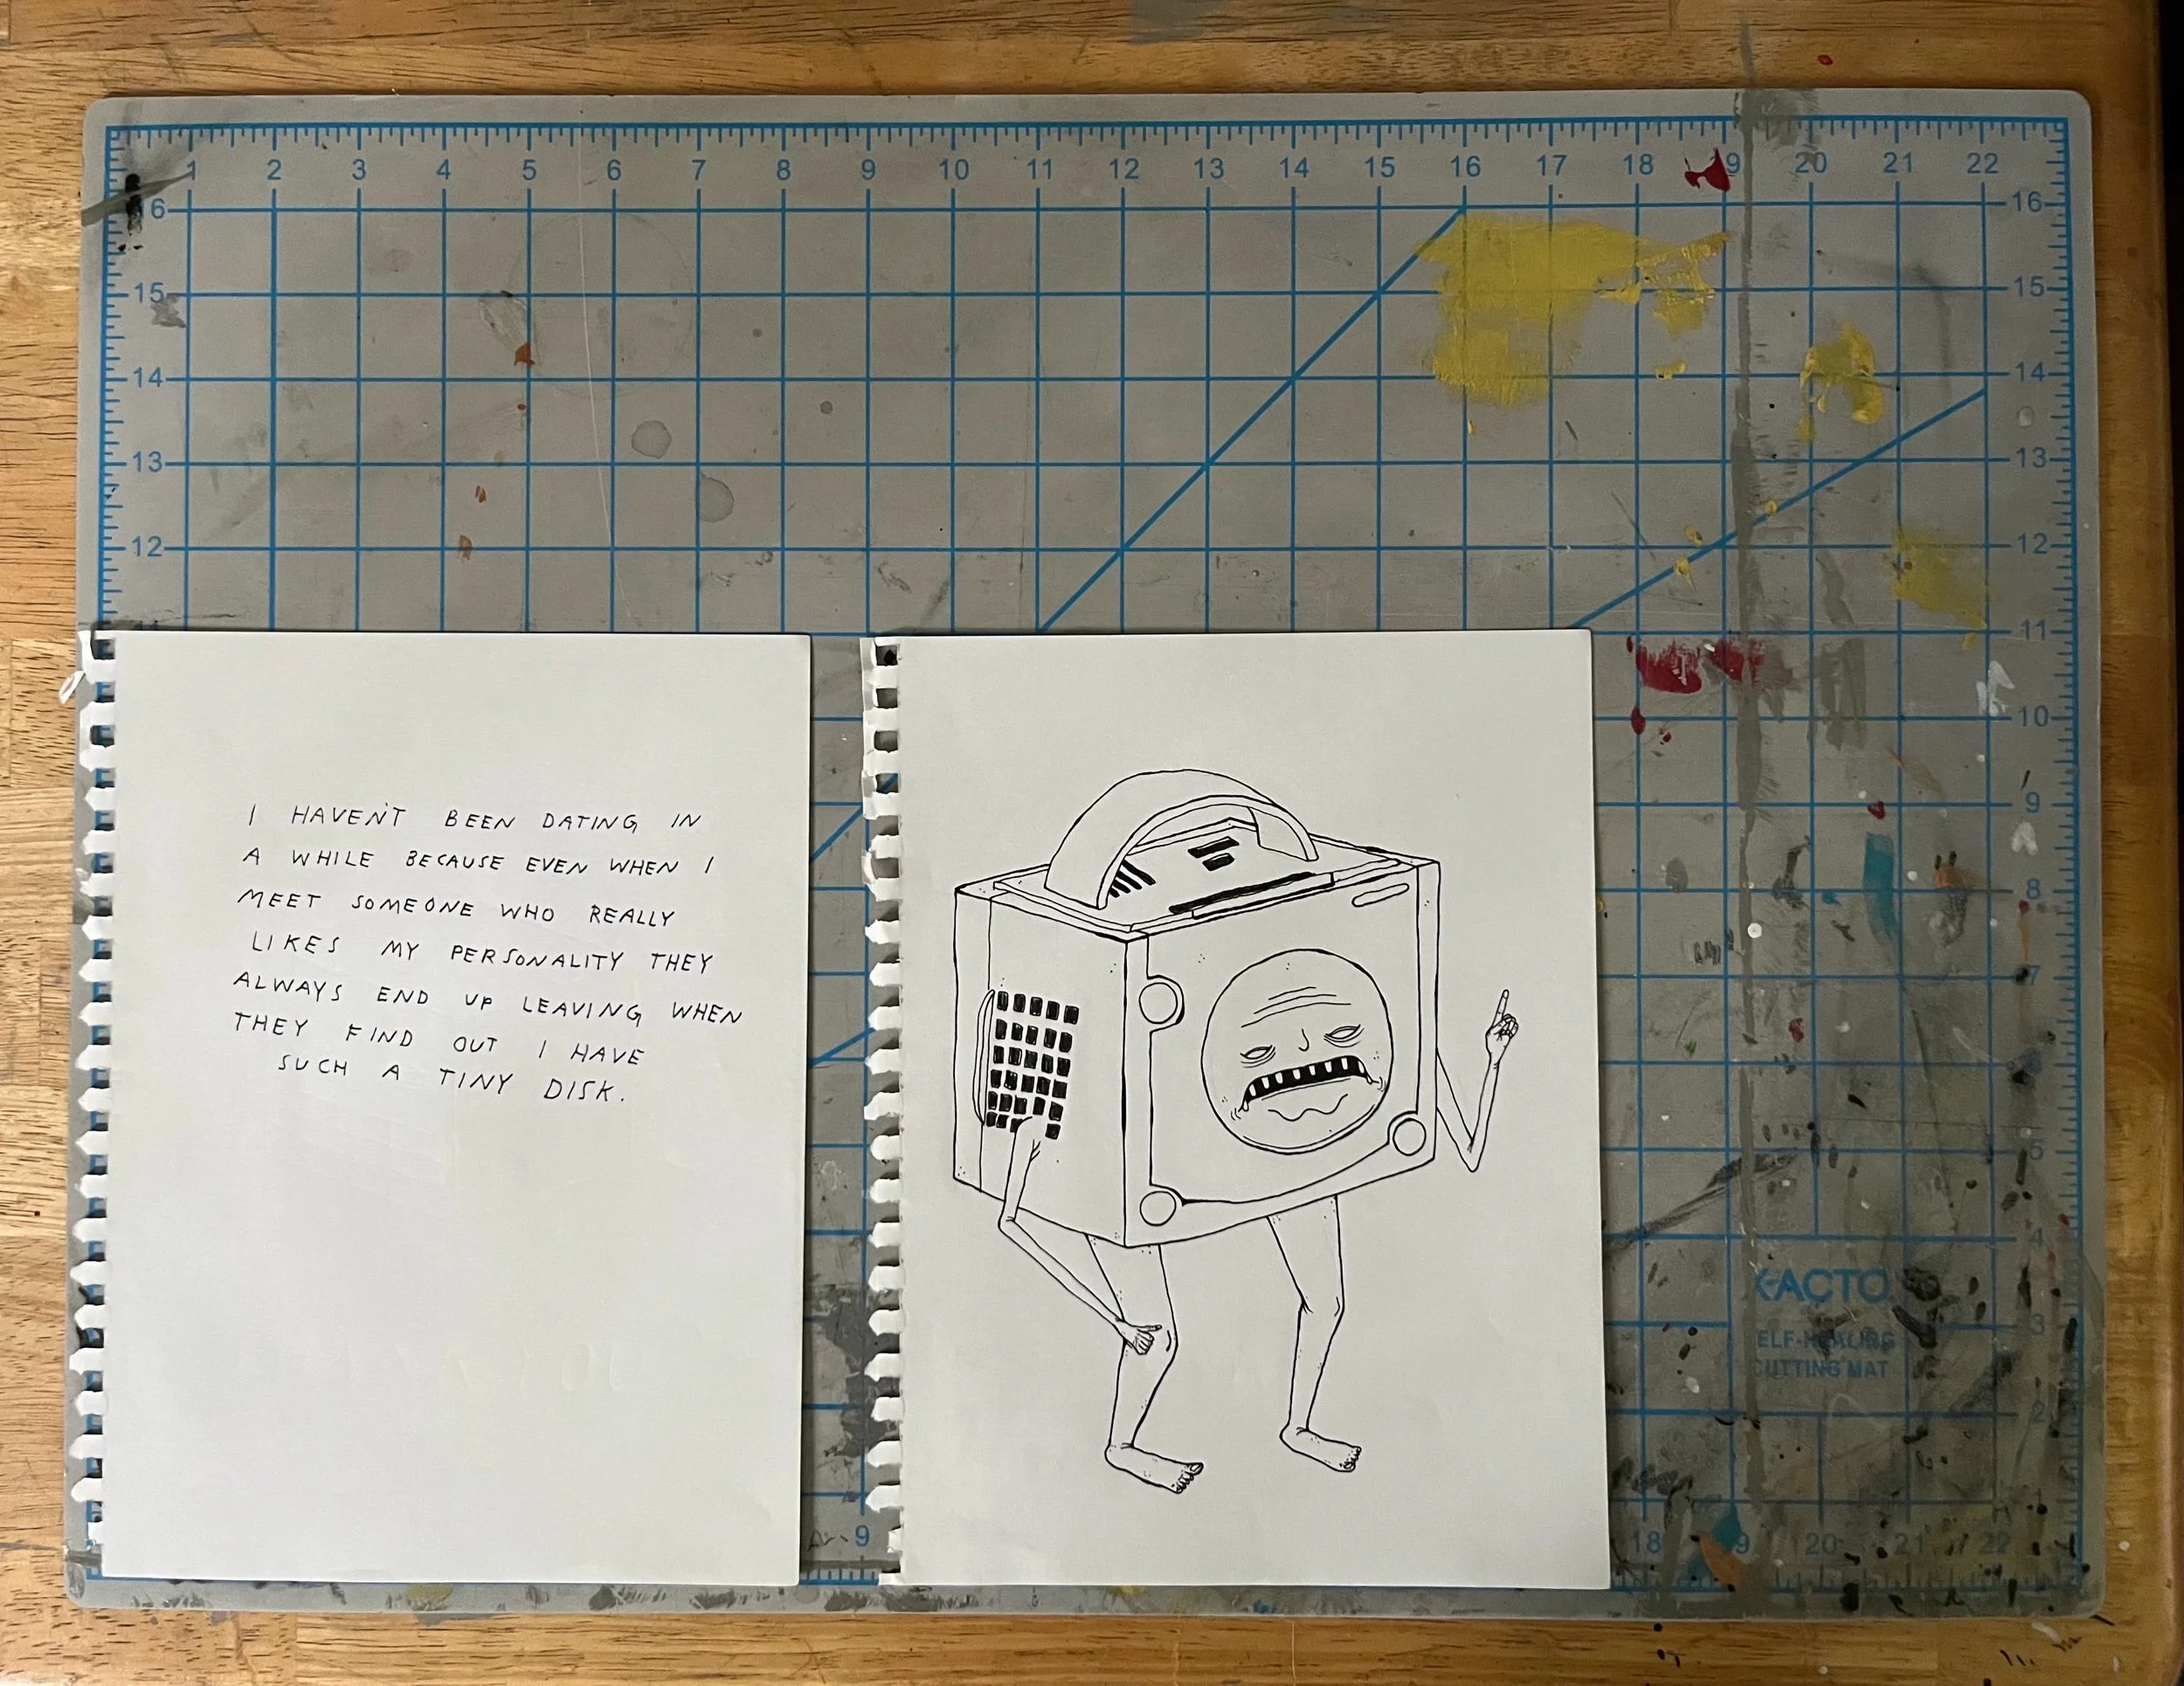 1 2 3 4 5 6 7 8 9 10 11 12 13 14 15 16 17 18 9 20 21 22
6 16
15 15
14 14
13 13
12 12
11
10
9
8
7
5
4
3
2
I HAVEN'T BEEN DATING IN
A WHILE BECAUSE EVEN WHEN I
MEET SOMEONE WHO REALLY
LIKES MY PERSONALITY THEY
ALWAYS END UP LEAVING WHEN
THEY FIND OUT I HAVE
SUCH A TINY DISK.
X-ACTO
ELF-HEALING
CUTTING MAT
9 18 9 20 21 22